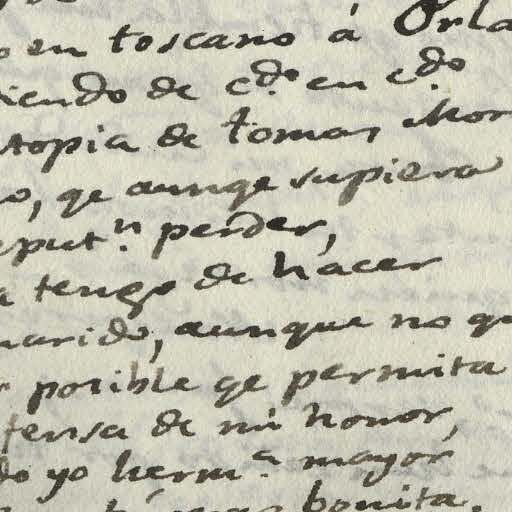 en toscano á Orla
iendo de c.do en c.do
topia de tomas Mor
o, qe aunqe supiera
eput.n perder,
a tengo de hacer
marido, aunque no qu
r posible qe permita
fensa de mi honor,
do yo herm.a mayor
bonita.